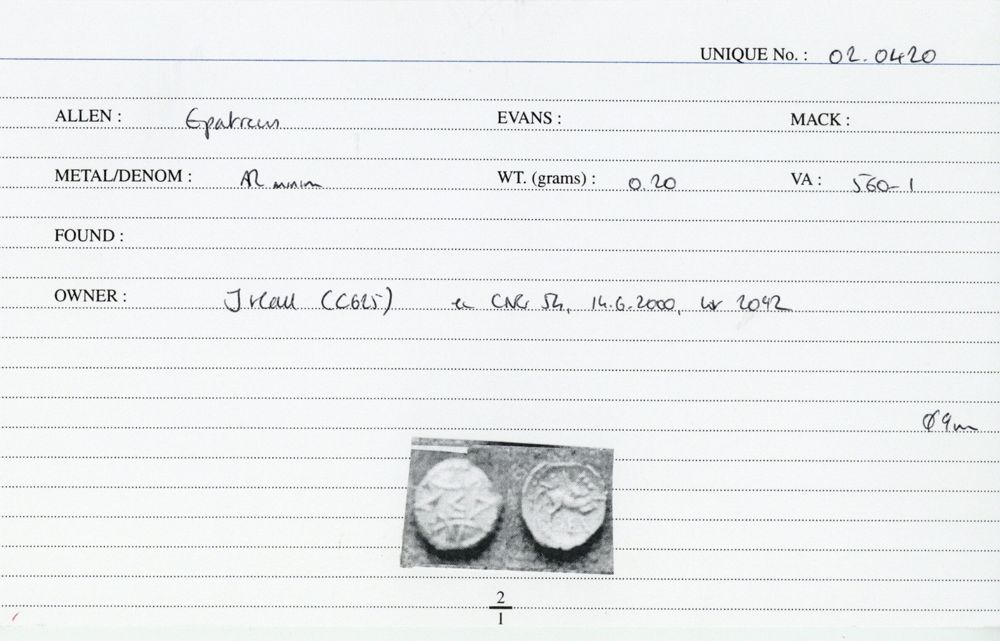 UNIQUE No. : 02.0420
ALLEN : Epaticcus EVANS : MACK :
METAL/DENOM : AR minim WT. (grams) : 0.20 VA : 560-1
FOUND :
OWNER : (C625) ex CNG 54, 14.6.2000, lot 2042
Ø 9m
2
1